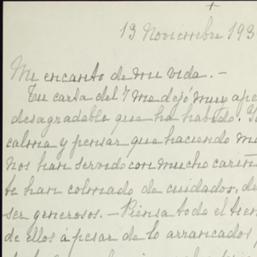 +
13 Noviembre 193
Mi encanto de mi vida. —
Tu carta del 7 me dejó muy ape
desagradable que ha habido. T
calma y pensar que haciendo m
nos han servido con mucho cariñ
te han colmado de cuidados, de
ser generosos. — Piensa todo el tiem
de ellos á pesar de lo arrancados